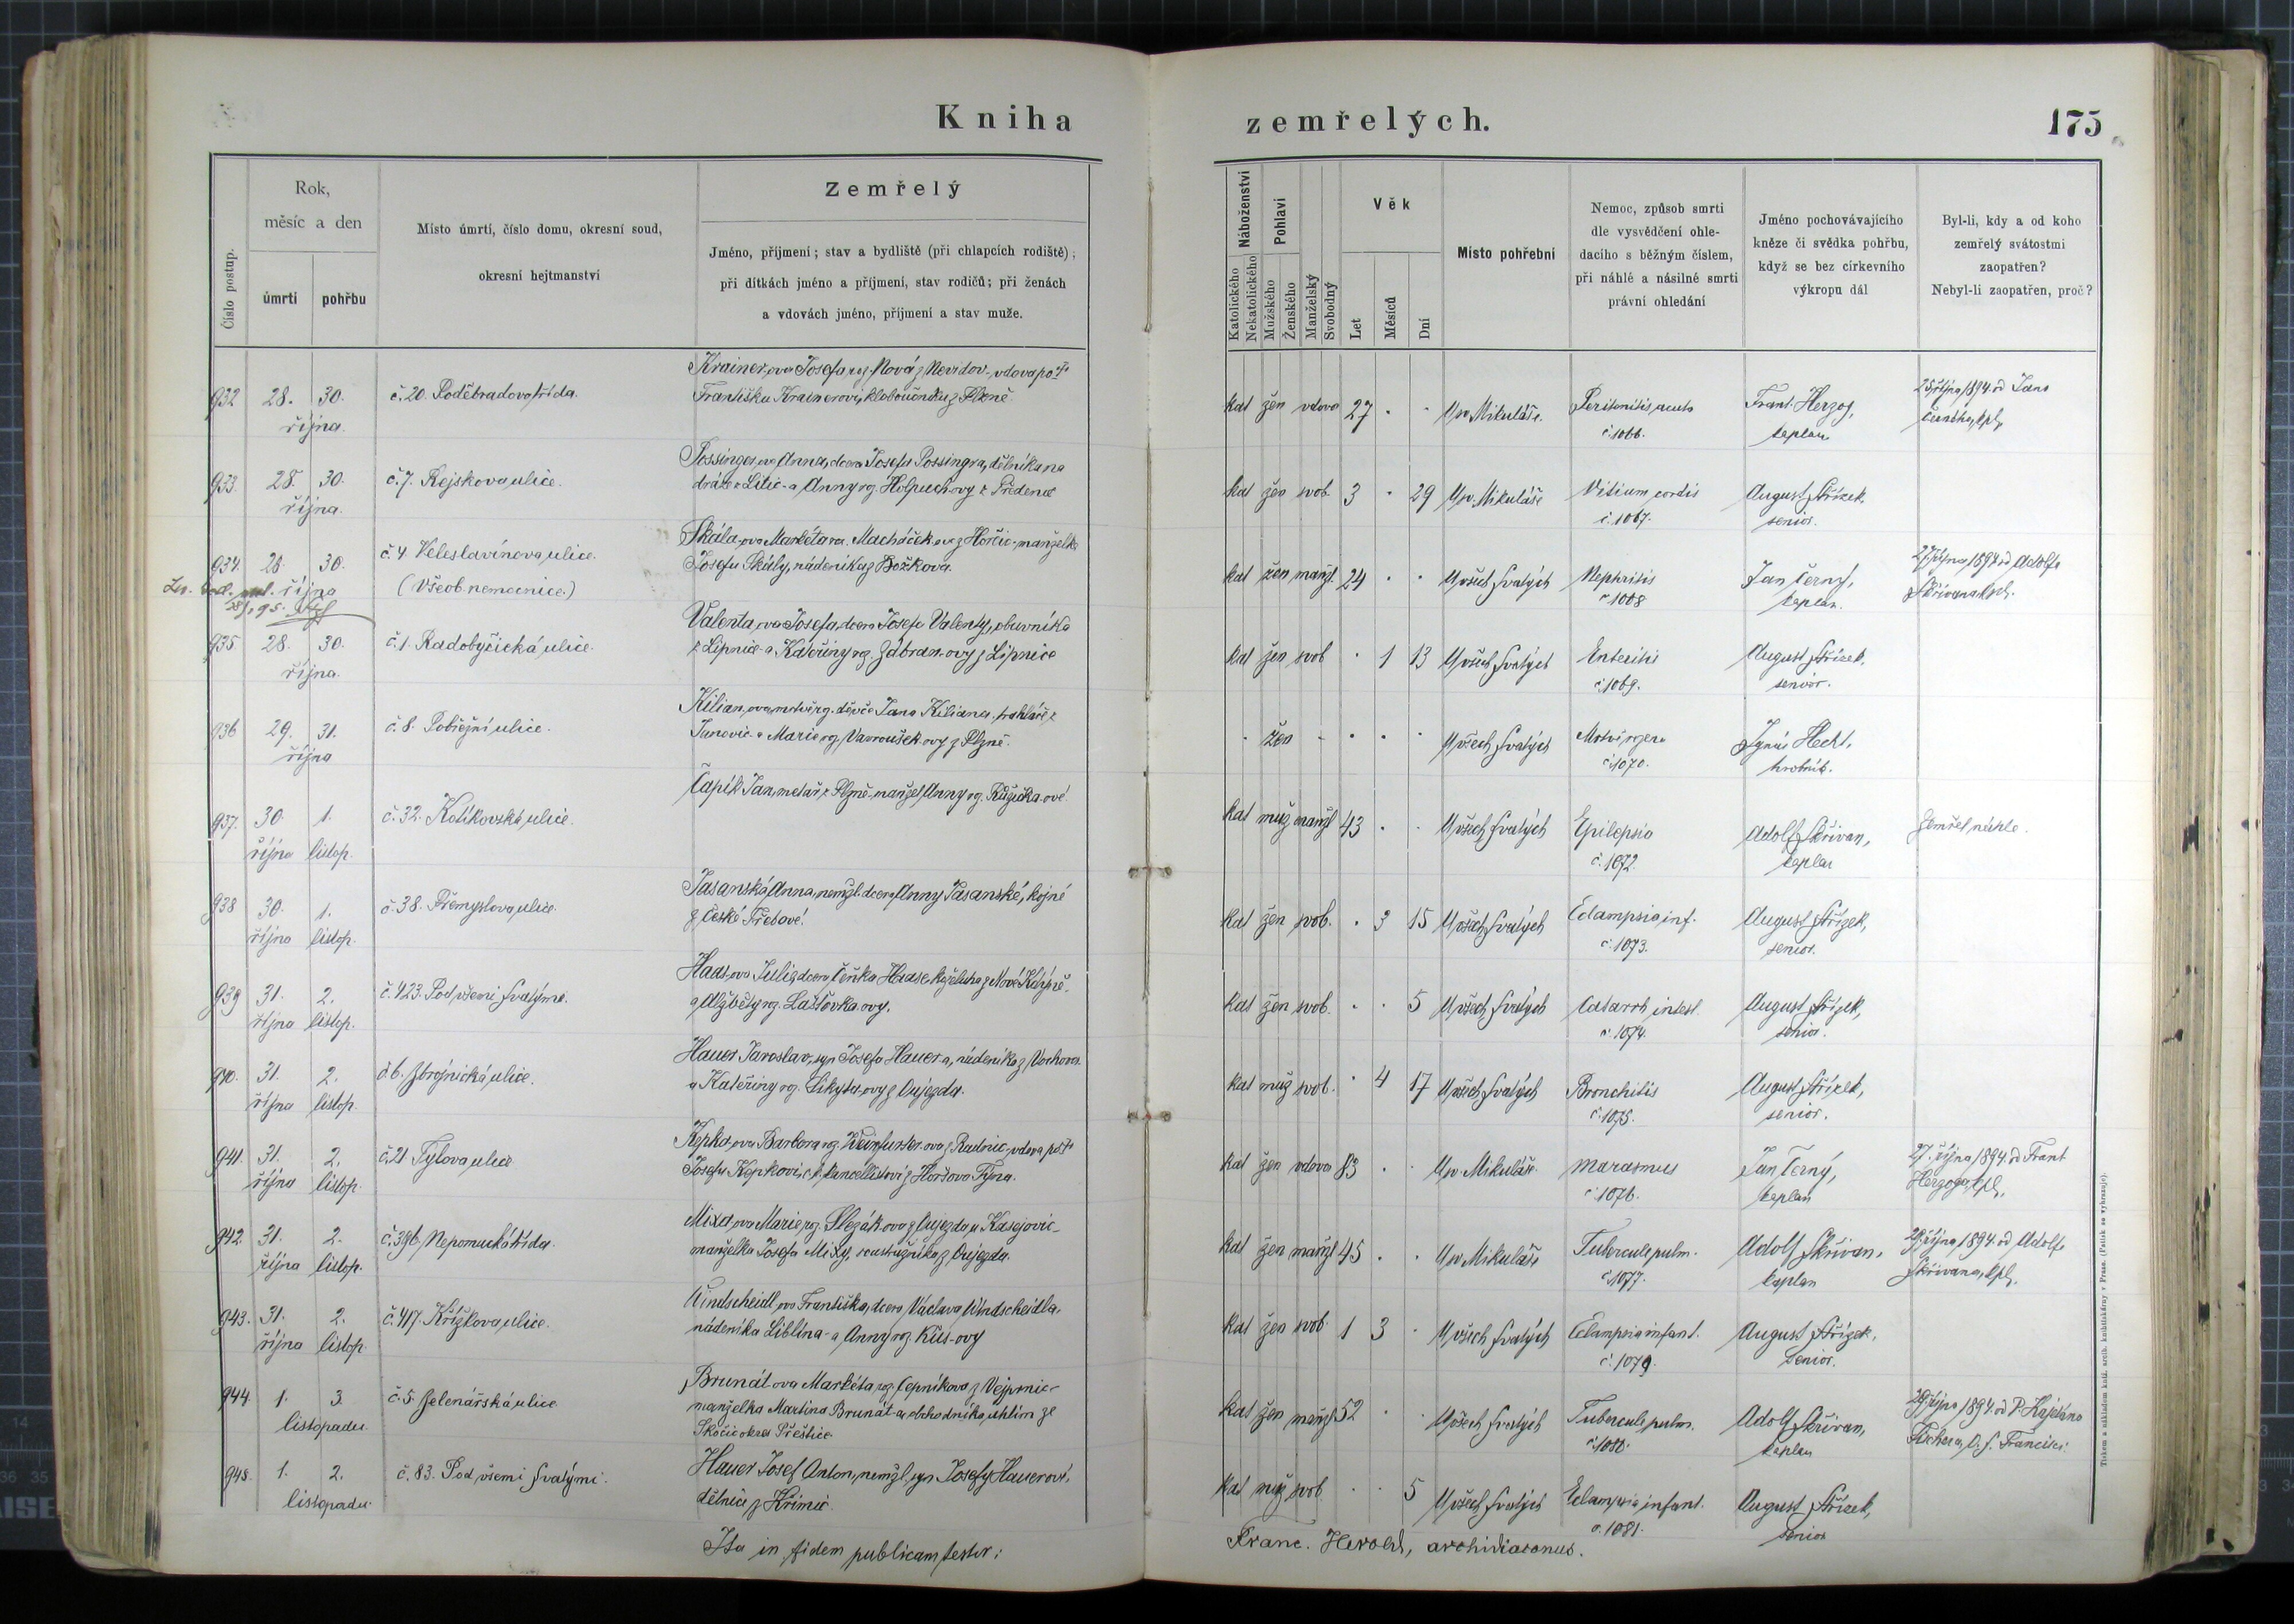 Kniha
zemřelých.
175
Číslo postup.
Rok,
měsíc a den
úmrtí
pohřbu
Místo úmrtí, číslo domu, okresní soud,
okresní hejtmanství
Zemřelý
Jméno, příjmení; stav a bydliště (při chlapcích rodiště);
při dítkách jméno a příjmení, stav rodičů; při ženách
a vdovách jméno, příjmení a stav muže.
Náboženství
Katolického
Nekatolického
Pohlaví
Mužského
Ženského
Manželský
Svobodný
Věk
Let
Měsíců
Dní
Místo pohřební
Nemoc, způsob smrti
dle vysvědčení ohle-
dacího s běžným číslem,
při náhlé a násilné smrti
právní ohledání
Jméno pochovávajícího
kněze či svědka pohřbu,
když se bez církevního
výkropu dál
Byl-li, kdy a od koho
zemřelý svátostmi
zaopatřen?
Nebyl-li zaopatřen, proč?
932 28. 30. č. 20. Poděbradova třída.
října.
Krainer-ova Josefa, roz. Nová z Nevidov- vdova po
Františku Krainerovi, kloboučníku z Plzně
kat žen vdova 27 U sv. Mikuláše. Peritonitis acuta Frant. Herzog, 25 října 1894. od Jana
č. 1066. kaplan
933. 28. 30. č. 7. Rejskova ulice.
října.
Possinger-ova Anna, dcera Josefa Possingra, dělníka na
dráze z Litic- a Anny roz.
kat žen svob. 3 29 U sv. Mikuláše Vitium cordis August Střízek,
č. 1067. senior.
934. 28. 30. č. 4. Veleslavínova ulice.
října (Všeob. nemocnice.)
Skála-ova Markéta roz. Macháček-ova z Horšic- manželka
Josefa Skály, nádeníka z Božkova.
kat žen manž. 24 U všech svatých Nephritis Jan Černý, 27 října 1894 od Adolfa
č. 1068 kaplan. Skřivana kpl.
935 28. 30. č. 1. Radobyčická ulice.
října.
Valenta-ova Josefa, dcera Josefa Valenty, obuvníka
z Lipnice- a Kateřiny roz. Zábran-ovy z Lipnice
kat žen svob 1 13 U všech svatých Enteritis August Střízek,
č. 1069. senior.
936 29. 31. č. 8. Pobřežní ulice.
října
Kilian-ova mrtvě roz. děvče Jana Kiliana, truhláře z
Janovic- a Marie roz. Vavroušek-ovy z Plzně.
žen U všech svatých Mrtvě rozena Ignác Hecht,
č. 1070. hrobník.
937. 30. 1. č. 32. Kotíkovská ulice.
října listop.
Čapík Jan, metař z Plzně- manžel Anny roz. Růžička-ové.
kat muž manžl 43 U všech svatých Epilepsia Adolf Skřivan, Zemřel náhle.
č. 1072. kaplan
938 30. 1. č. 38. Přemyslova ulice.
října listop.
Jasanská Anna, nemžl. dcera Anny Jasanské, kojné
z České Třebové.
kat žen svob. 3 15 U všech svatých Eclampsia inf. August Střízek,
č. 1073. senior.
939 31. 2. č. 423. Pod všemi svatými.
října listop.
Haas-ova Julie, dcera Čeňka Haase, koželuha z Nové Kdýně-
a Alžběty roz. Laštovka-ovy.
kat žen svob. 5 U všech svatých Catarrh intest. August Střízek,
č. 1074. senior.
940. 31. 2. č. 6. Zbrojnická ulice.
října listop.
Hauer Jaroslav, syn Josefa Hauer-a, nádeníka z Vochova
a Kateřiny roz. Sikyta-ovy z Oujezda.
kat muž svob. 4 17 U všech svatých Bronchitis August Střízek,
č. 1075. senior.
941. 31. 2. č. 21 Tylova ulice
října listop.
Kepka-ova Barbora roz. Weinfurter-ova z Radnic, vdova po
Josefu Kepkovi, c. k. kancellistovi z Horšova Týna.
kat žen vdova 83 U sv. Mikuláše Marasmus Jan Černý, 27. října 1894. od Frant
č. 1076. kaplan Herzoga, kpl.
942. 31. 2. č. 396, Nepomucká třída.
října listop.
Mixa-ova Marie, roz. Slezák-ova z Oujezda u Kasejovic-
manželka Josefa Mixy, soustružníka z Oujezda.
kat žen manžl 45 U sv. Mikuláše Tubercule pulm. Adolf Skřivan, 29 října 1894. od Adolfa
č. 1077. kaplan Skřivana, kpl.
943. 31. 2. č. 417. Křižkova ulice.
října listop.
Windscheidl-ova Františka, dcera Václava Windscheidla,
nádeníka Liblína- a Anny roz. Kůs-ovy
kat žen svob 1 3 U všech svatých Eclampsia infant. August Střízek,
č. 1079. senior.
944. 1. 3. č. 5. Jelenářská ulice
listopadu.
Brunát-ova Markéta, roz. Čepníkova z Vejprnic-
manželka Martina Brunát-a, obchodníka uhlím ze
Skočic okres Přeštice.
kat žen manžl 52 U všech svatých Tubercule pulm. Adolf Skřivan, 29 října 1894. od P. Kajetána
č. 1080. kaplan Fischera, O. S. Francisci.
945. 1. 2. č. 83. Pod všemi svatými.
listopadu.
Hauer Josef Anton, nemžl. syn Josefy Hauerové,
dělnice z Křimic.
kat muž svob 5 U všech svatých Eclampsia infant. August Střízek,
č. 1081. senior
Ita in fidem publicam testor:
Franc. Herold, archidiaconus.